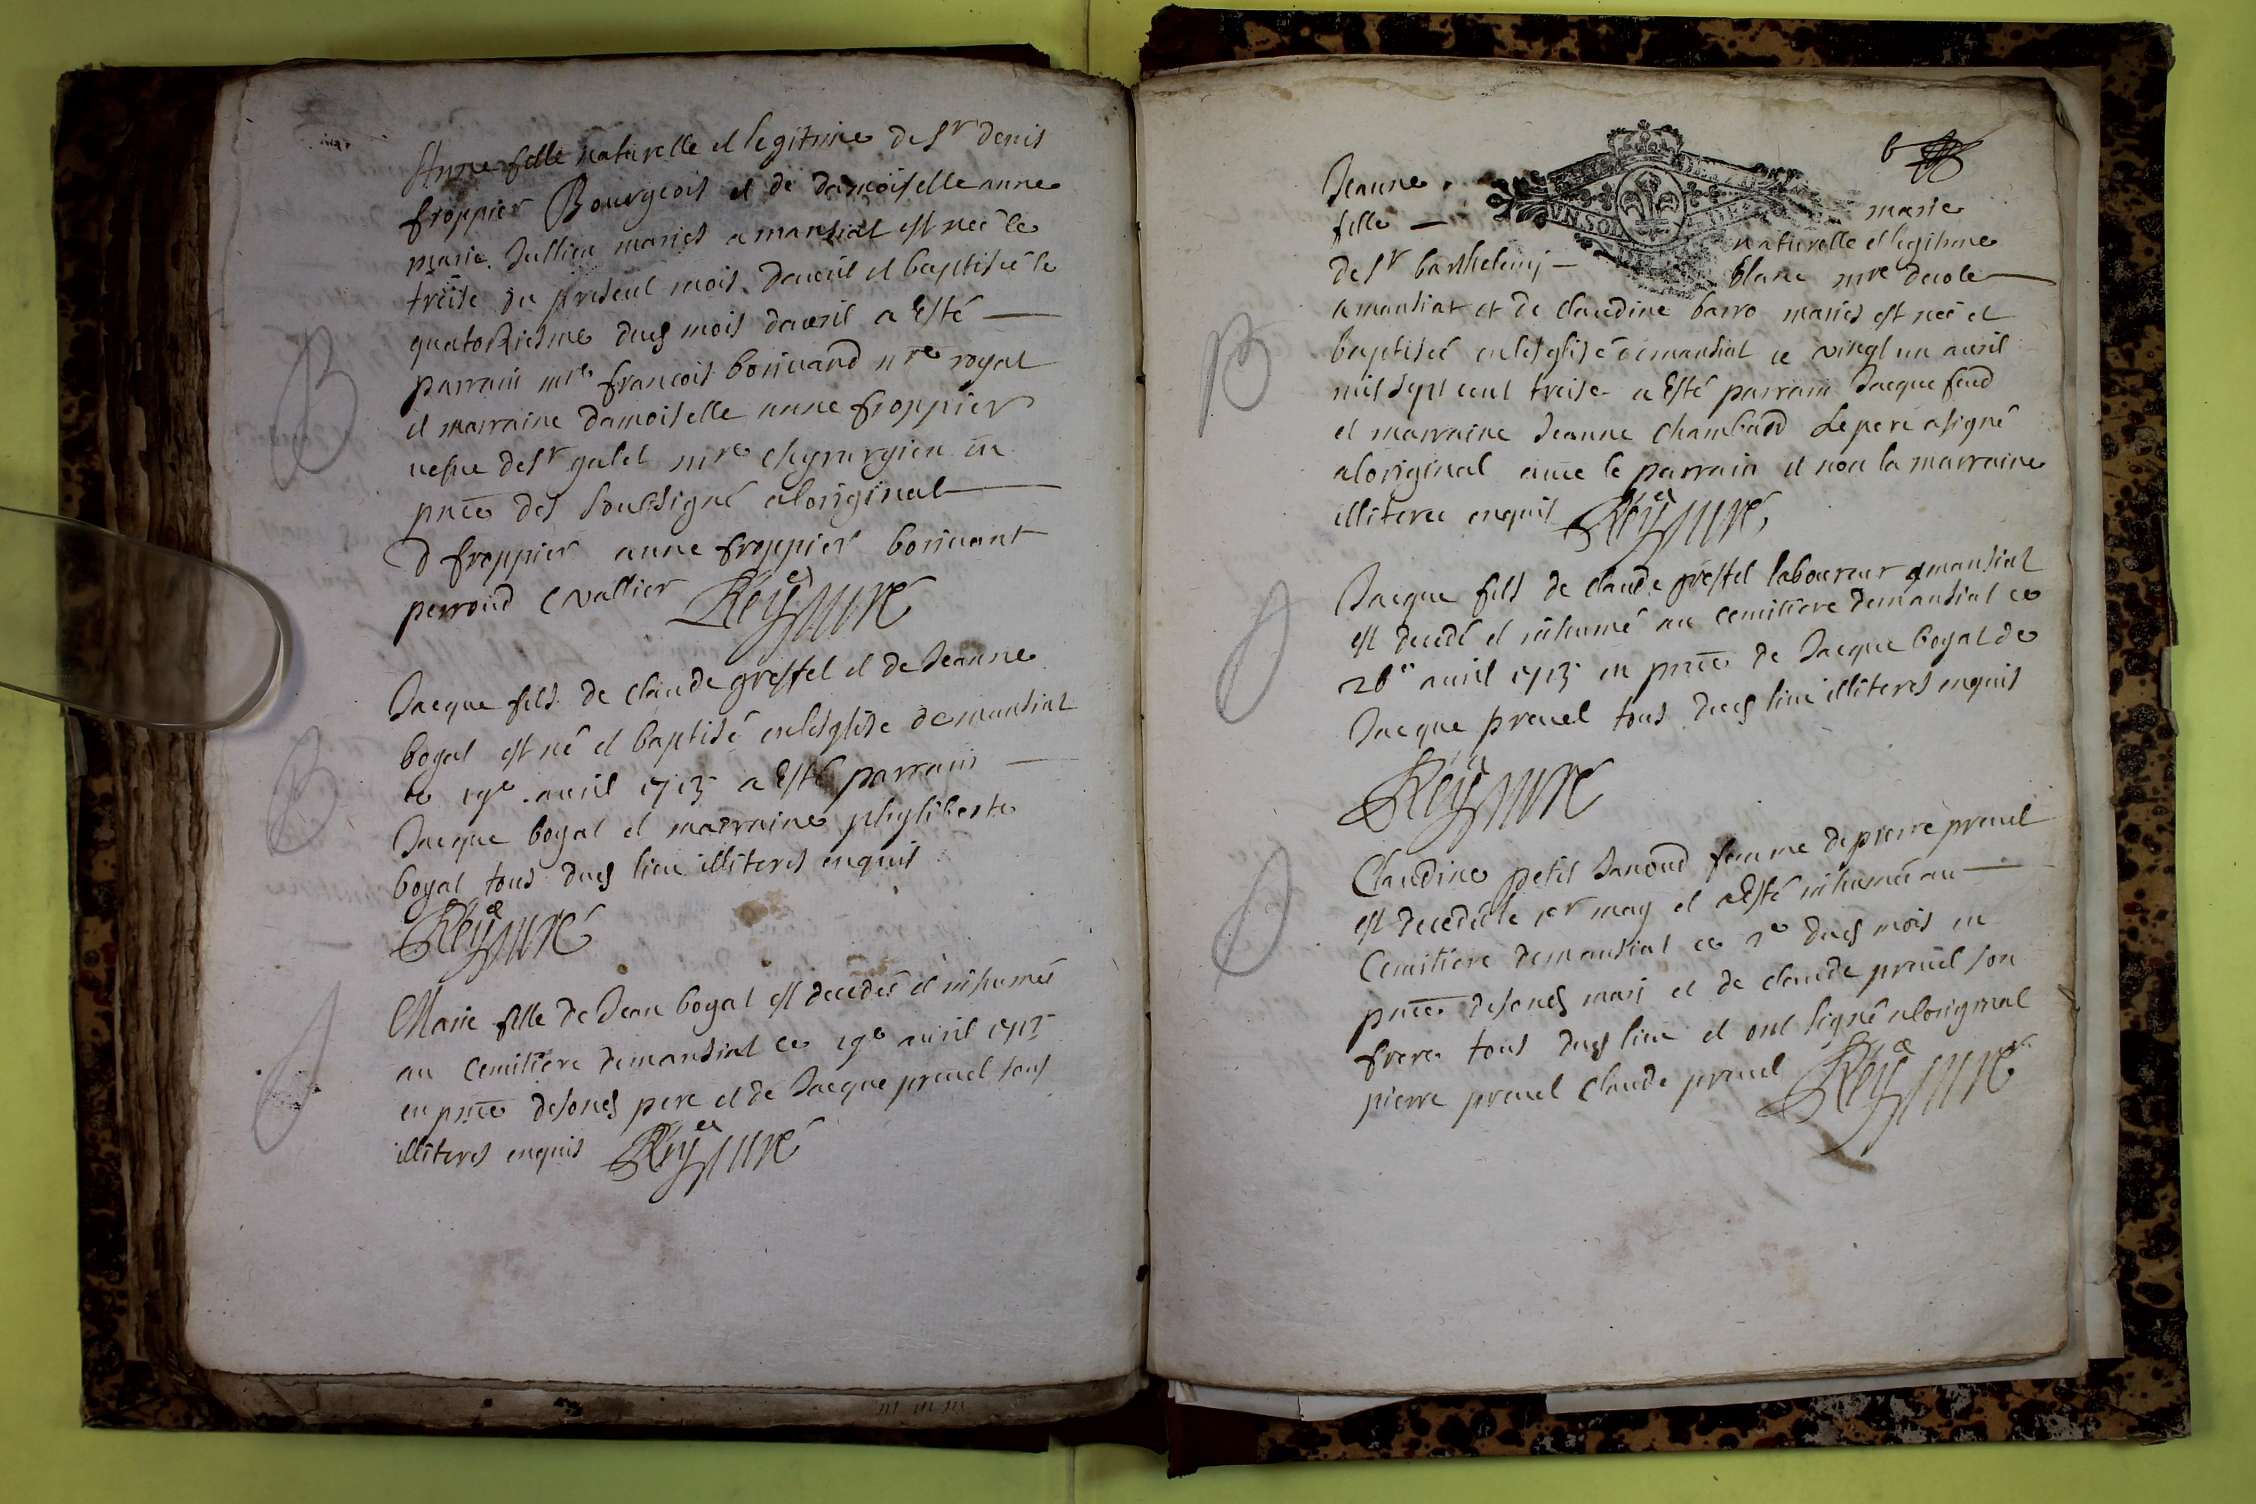 Anne fille naturelle et legitime de Sr denis
froppier Bourgeois et de damoiselle anne
marie Jullien mariés a mansiat est neé le
treise du present mois davril et baptiseé le
quatorziesme dud mois davril a Esté
parrain mre francois boriuand nre royal
et marraine damoiselle anne froppier
uefue de Sr galet mre chyrurgien en
pnce des soubsigné aloriginal
D froppier anne froppier boriuant
perroud C vallier Reÿ curé
B
Jacque fils de claude greffel et de Jeanne
boyat est né et baptisé en lesglise de mansiat
le 19e avril 1713 a Esté parrain
Jacque boyat et marraine phyliberte
boyat tous dud lieu illiteres enquis
Reÿ curé
B
Marie fille de Jean boyat est decedeé et inhumeé
au cemitiere de mansiat ce 19e avril 1713
en pnce de soned pere et de Jacque preuel tous
illiteres enquis Reÿ curé
6
Jeanne marie
fille naturelle et legitime
de Sr barthelemj blanc mre decole
a mansiat et de claudine barro mariés est neé et
baptiseé en lesglise de mansiat ce vingt un avril
mil sept cent treise a Esté parrain Jacque feud
et marraine Jeanne chambard Le pere a signé
aloriginal auec le parrain et non la marraine
illiteree enquis Reÿ curé
B
UN SOL
Jacque fils de claude greffel laboureur a mansiat
est decedé et inhumé au cemitiere de mansiat ce
26e avril 1713 en pnce de Jacque boyat de
Jacque preuel tous dud lieu illiteres enquis
Reÿ curé
Claudine petit Janoud femme de pierre preuel
est decedeé le 1er may et a Esté inhumeé au
Cemitiere de mansiat ce 2e dud mois en
pnce de soned mari et de claude preuel son
frere tous dud lieu et ont signé aloriginal
pierre preuel Claude preuel Reÿ curé